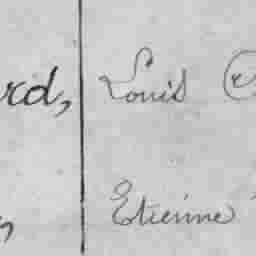 rd, Louis
Etienne